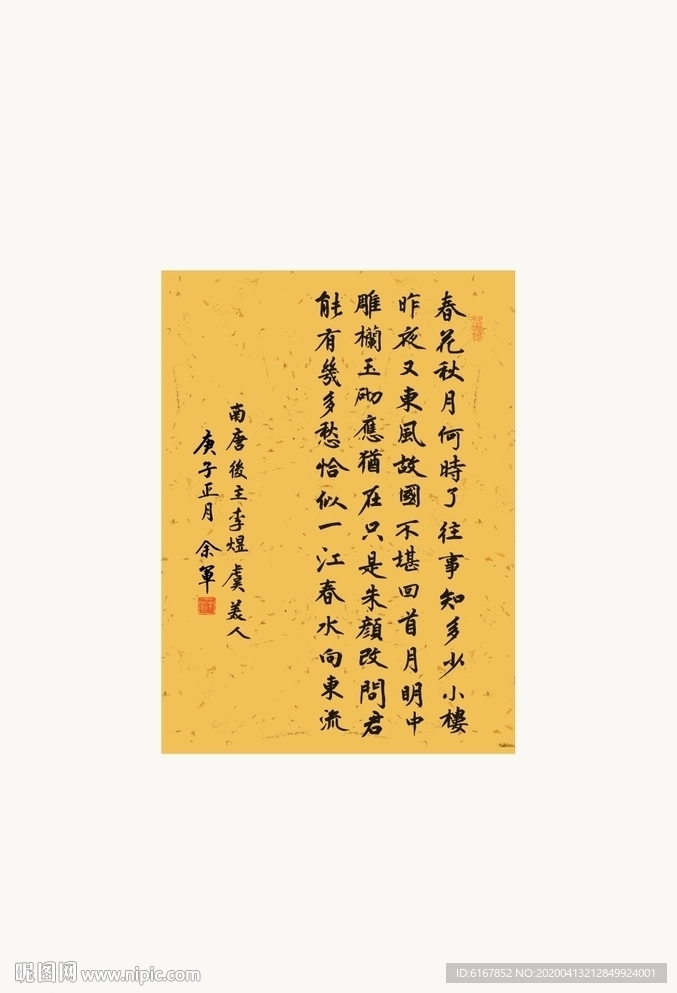 春花秋月何時了往事知多少小樓
昨夜又東風故國不堪回首月明中
雕欄玉砌應猶在只是朱顏改問君
能有幾多愁恰似一江春水向東流
南唐後主李煜虞美人
庚子正月 余軍
昵图网 www.nipic.com
ID:6167852 NO:20200413212849924001